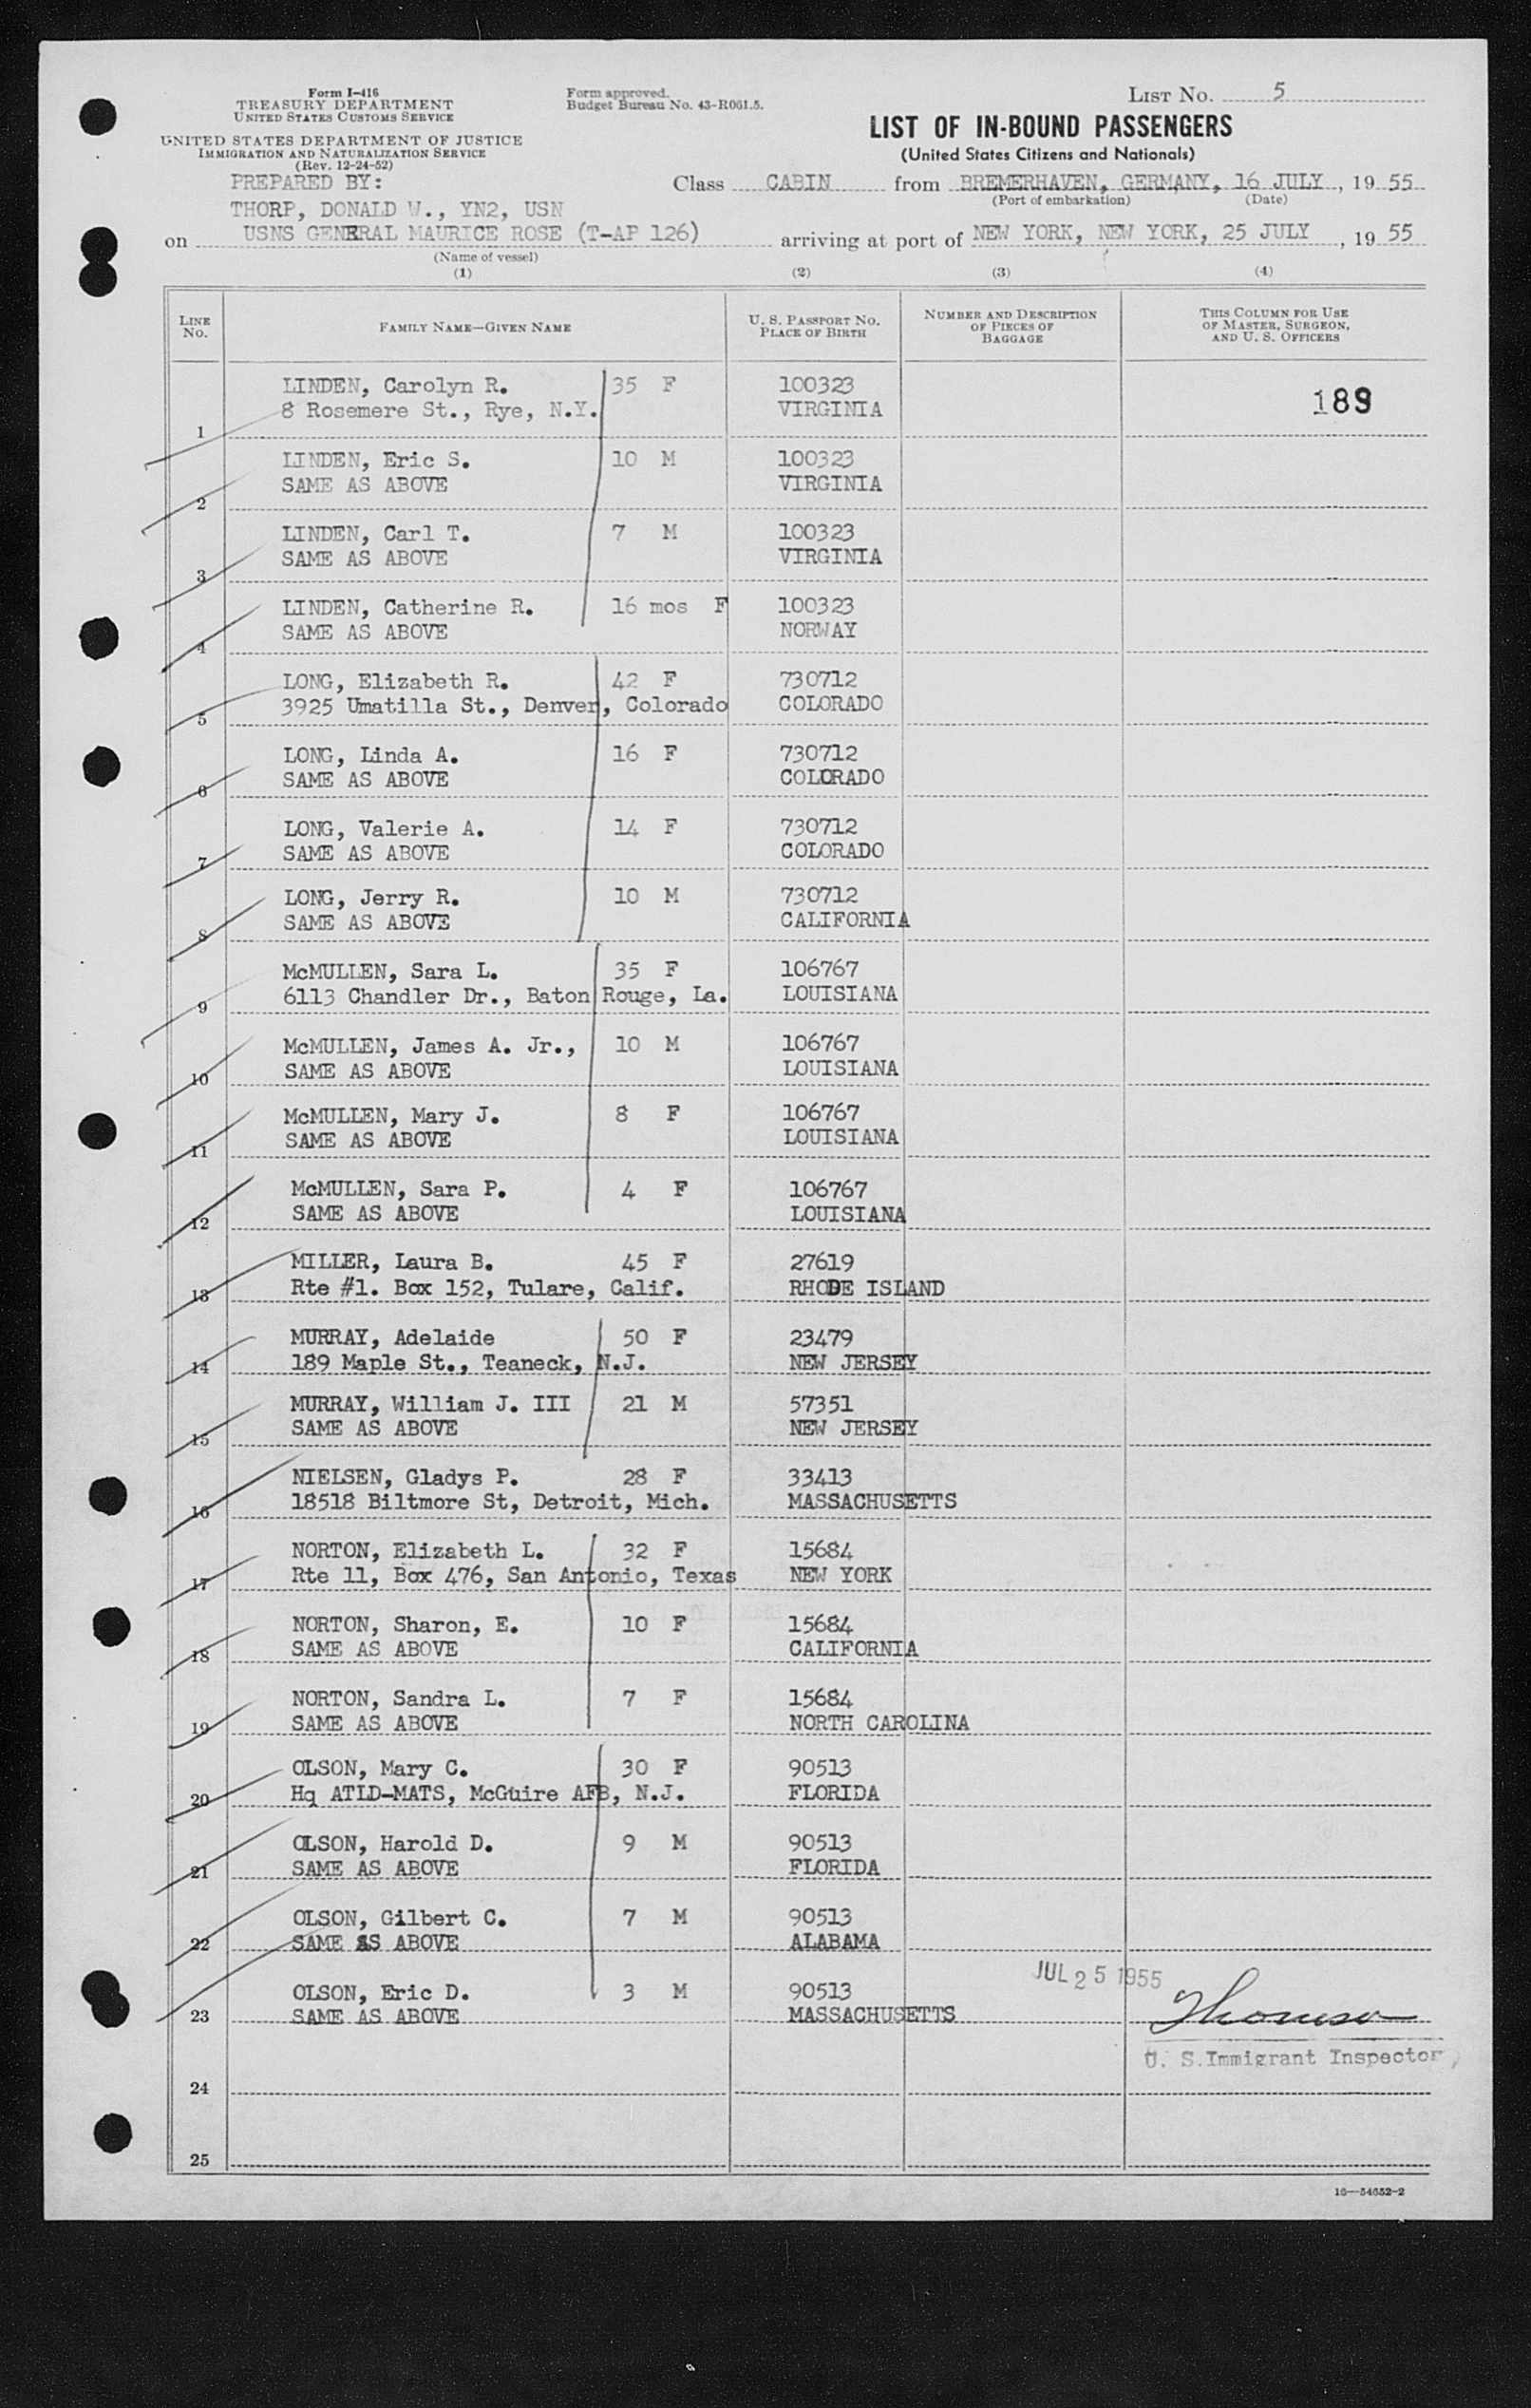 Form I-416
TREASURY DEPARTMENT
UNITED STATES CUSTOMS SERVICE
UNITED STATES DEPARTMENT OF JUSTICE
IMMIGRATION AND NATURALIZATION SERVICE
(Rev. 12-24-52)
Form approved.
Budget Bureau No. 43-R061.5.
LIST NO. 5
LIST OF IN-BOUND PASSENGERS
(United States Citizens and Nationals)
PREPARED BY:
THORP, DONALD W., YN2, USN
Class CABIN from BREMERHAVEN, GERMANY, 16 JULY, 19 55
(Port of embarkation) (Date)
on USNS GENERAL MAURICE ROSE (T-AP 126) arriving at port of NEW YORK, NEW YORK, 25 JULY, 19 55
(Name of vessel)
(1) (2) (3) (4)
LINE NO.
FAMILY NAME—GIVEN NAME
U. S. PASSPORT NO. PLACE OF BIRTH
NUMBER AND DESCRIPTION OF PIECES OF BAGGAGE
THIS COLUMN FOR USE OF MASTER, SURGEON, AND U. S. OFFICERS
LINDEN, Carolyn R. 35 F 100323 189
1 8 Rosemere St., Rye, N.Y. VIRGINIA
LINDEN, Eric S. 10 M 100323
2 SAME AS ABOVE VIRGINIA
LINDEN, Carl T. 7 M 100323
3 SAME AS ABOVE VIRGINIA
LINDEN, Catherine R. 16 mos F 100323
4 SAME AS ABOVE NORWAY
LONG, Elizabeth R. 42 F 730712
5 3925 Umatilla St., Denver, Colorado COLORADO
LONG, Linda A. 16 F 730712
6 SAME AS ABOVE COLORADO
LONG, Valerie A. 14 F 730712
7 SAME AS ABOVE COLORADO
LONG, Jerry R. 10 M 730712
8 SAME AS ABOVE CALIFORNIA
McMULLEN, Sara L. 35 F 106767
9 6113 Chandler Dr., Baton Rouge, La. LOUISIANA
McMULLEN, James A. Jr., 10 M 106767
10 SAME AS ABOVE LOUISIANA
McMULLEN, Mary J. 8 F 106767
11 SAME AS ABOVE LOUISIANA
McMULLEN, Sara P. 4 F 106767
12 SAME AS ABOVE LOUISIANA
MILLER, Laura B. 45 F 27619
13 Rte #1. Box 152, Tulare, Calif. RHODE ISLAND
MURRAY, Adelaide 50 F 23479
14 189 Maple St., Teaneck, N.J. NEW JERSEY
MURRAY, William J. III 21 M 57351
15 SAME AS ABOVE NEW JERSEY
NIELSEN, Gladys P. 28 F 33413
16 18518 Biltmore St, Detroit, Mich. MASSACHUSETTS
NORTON, Elizabeth L. 32 F 15684
17 Rte 11, Box 476, San Antonio, Texas NEW YORK
NORTON, Sharon, E. 10 F 15684
18 SAME AS ABOVE CALIFORNIA
NORTON, Sandra L. 7 F 15684
19 SAME AS ABOVE NORTH CAROLINA
OLSON, Mary C. 30 F 90513
20 Hq ATLD-MATS, McGuire AFB, N.J. FLORIDA
OLSON, Harold D. 9 M 90513
21 SAME AS ABOVE FLORIDA
OLSON, Gilbert C. 7 M 90513
22 SAME AS ABOVE ALABAMA
JUL 25 1955
OLSON, Eric D. 3 M 90513
23 SAME AS ABOVE MASSACHUSETTS
U. S. Immigrant Inspector
24
25
16—54652-2